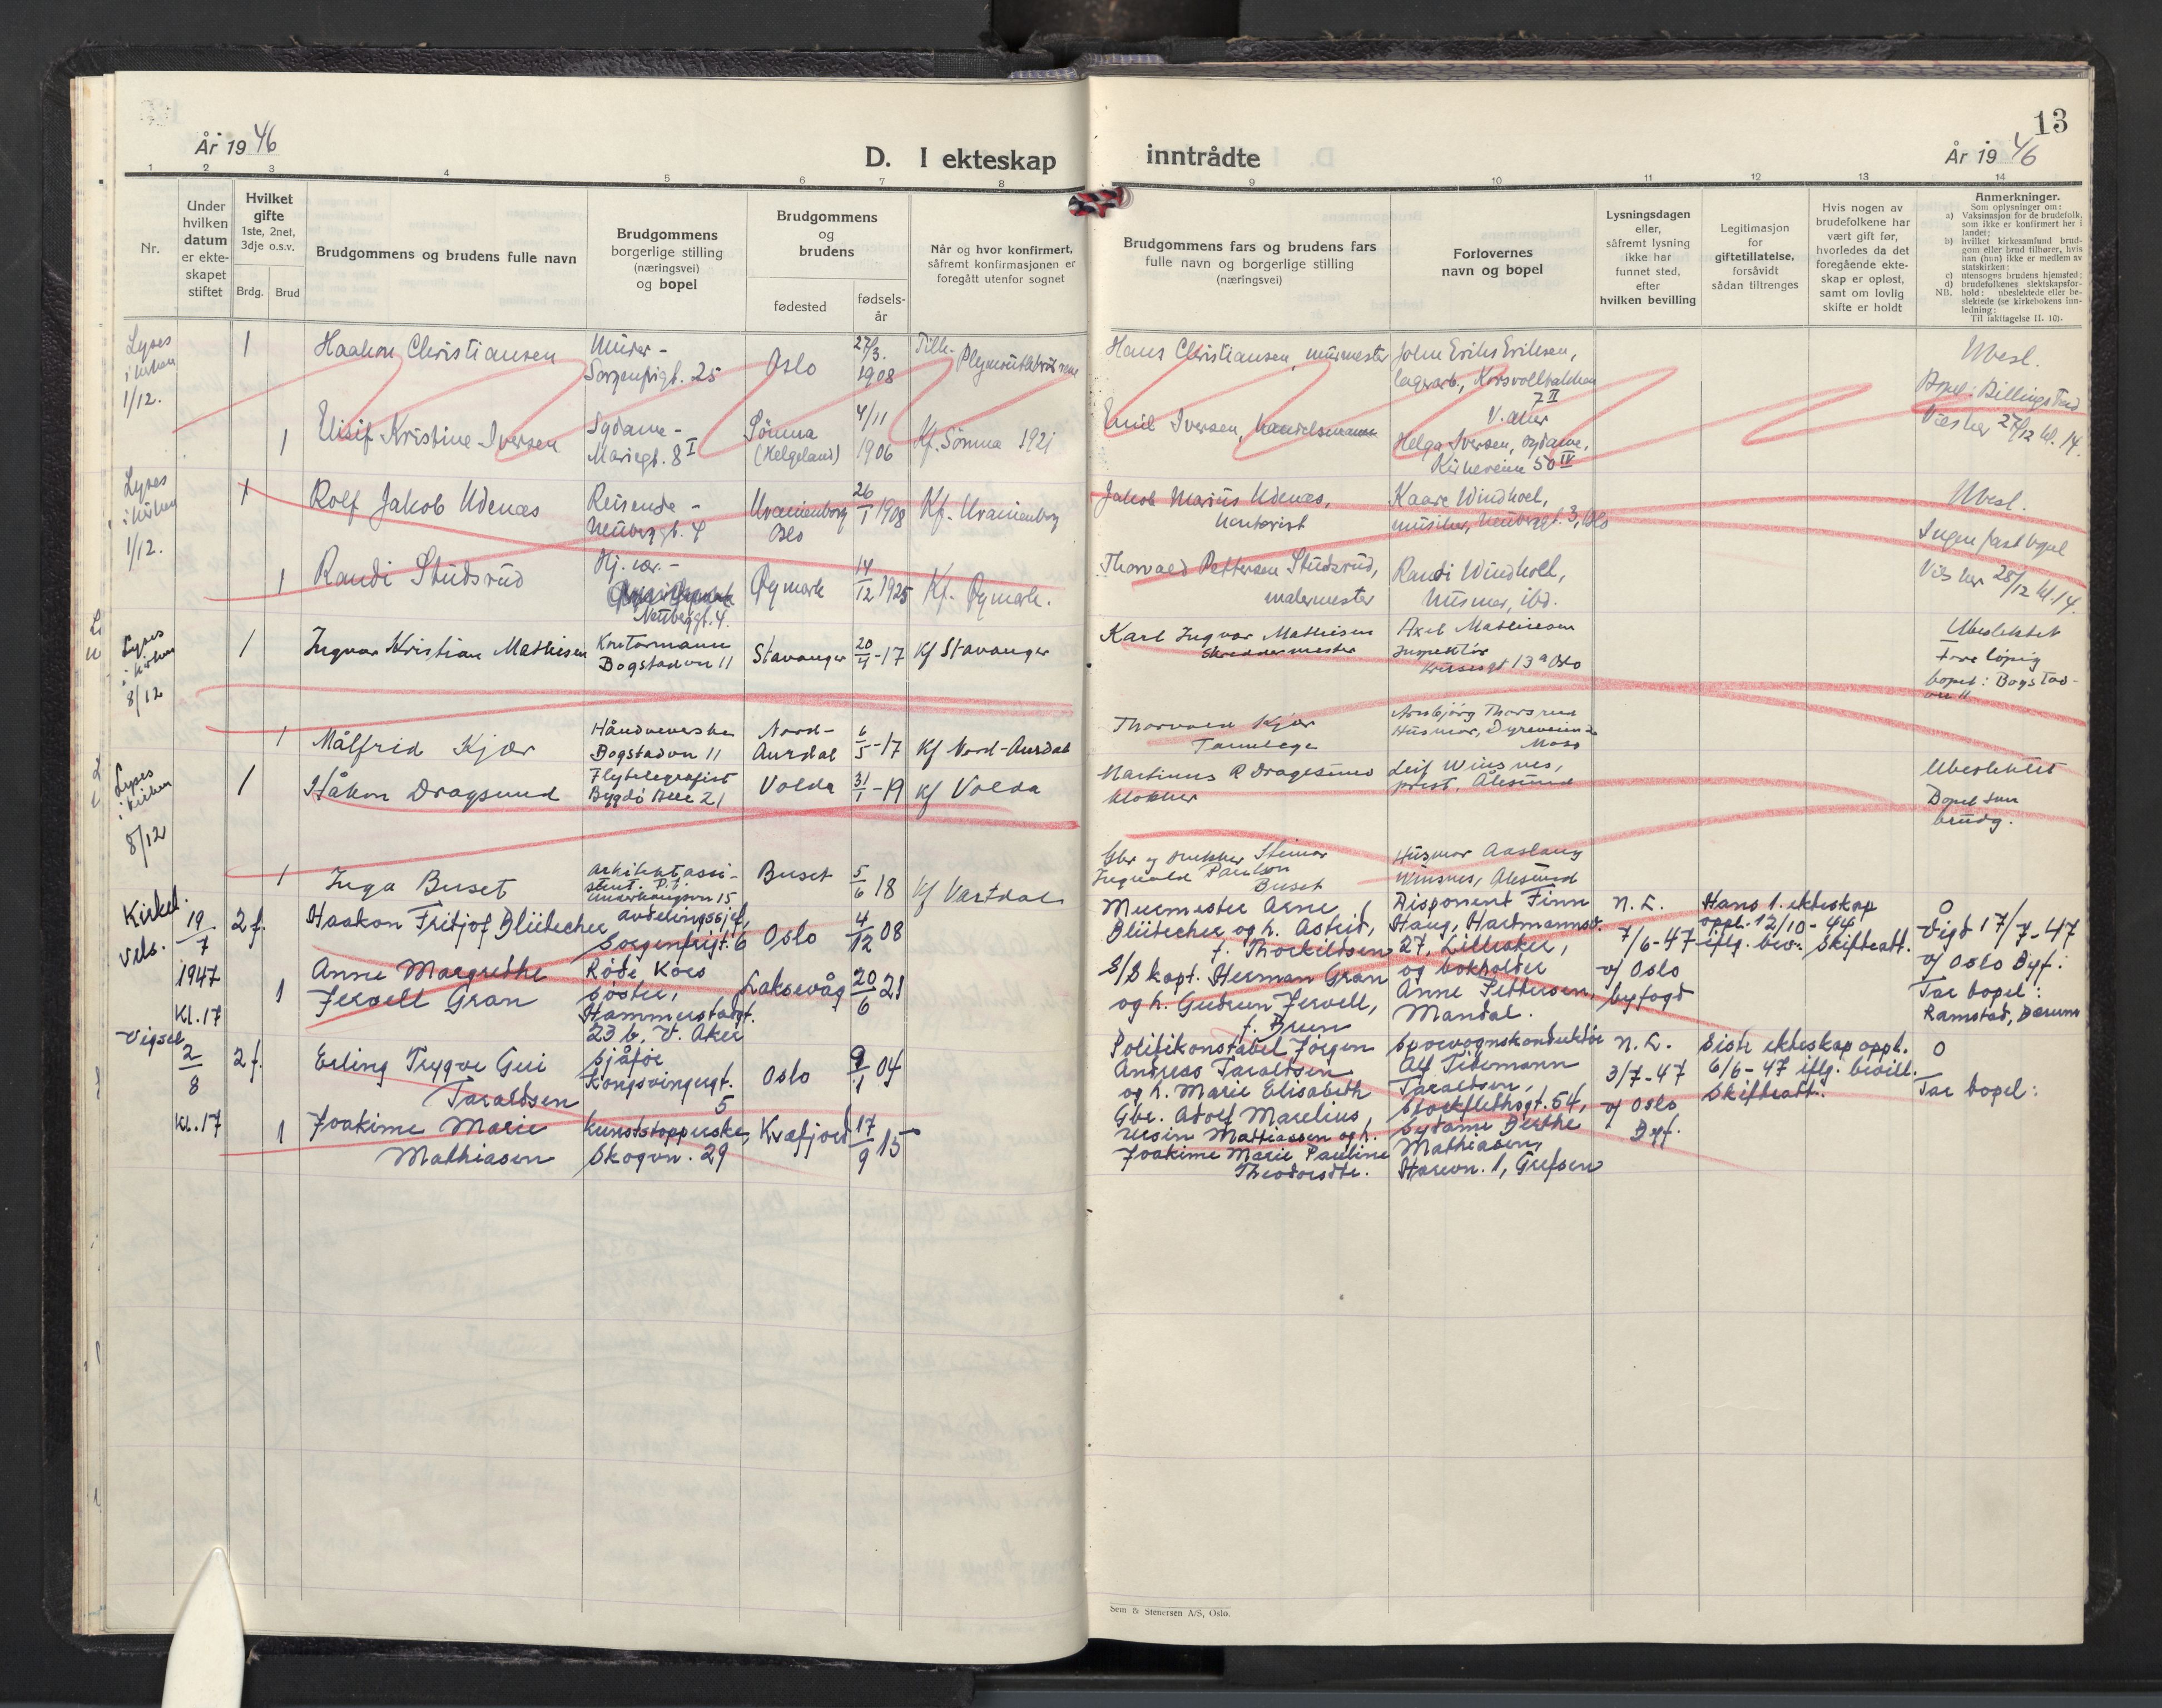 13
År 1946
D. I ekteskap inntrådte
År 1946
1 2 3 4 5 6 7 8 9 10 11 12 13 14
Nr.
Under
hvilken
datum
er ekte-
skapet
stiftet
Hvilket
gifte
1ste, 2net,
3dje o.s.v.
Brdg. Brud
Brudgommens og brudens fulle navn
Brudgommens
borgerlige stilling
(næringsvei)
og bopel
Brudgommens
og
brudens
fødested
fødsels-
år
Når og hvor konfirmert,
såfremt konfirmasjonen er
foregått utenfor sognet
Brudgommens fars og brudens fars
fulle navn og borgerlige stilling
(næringsvei)
Forlovernes
navn og bopel
Lysningsdagen
eller,
såfremt lysning
ikke har
funnet sted,
efter
hvilken bevilling
Legitimasjon
for
giftetillatelse,
forsåvidt
sådan tiltrenges
Hvis nogen av
brudefolkene har
vært gift før,
hvorledes da det
foregående ekte-
skap er opløst,
samt om lovlig
skifte er holdt
Anmerkninger.
Som oplysninger om:
a) Vaksinasjon for de brudefolk,
som ikke er konfirmert her i
landet;
b) hvilket kirkesamfund brud-
gom eller brud tilhører, hvis
han (hun) ikke er medlem av
statskirken;
c) utensogns brudens hjemsted;
d) brudefolkenes slektskapsfor-
hold: ubeslektede eller be-
slektede (se kirkebokens inn-
ledning:
NB. Til iakttagelse II. 10).
Lyses
i kirken
1/12.
1
Haakon Christiansen
Murer -
Sorgenfrigt. 25
Oslo
27/3.
1908
Hans Christiansen, murmester
John Eriks Eriksen,
lagerarb., Korsvollbakken
7 II
V. Aker
Ubesl.
Bopel: Billingstad
Vies her 27/12 kl. 14.
1
Elisif Kristine Iversen
Sydame -
Mariegt. 8 I
Sømna
(Helgeland)
4/11
1906
Kf. Sømna 1921
Emil Iversen, handelsmann
Helga Iversen, sydame,
Kirkeveien 50 IV
Lyses
i kirken
1/12.
1
Rolf Jakob Udenæs
Reisende -
Neubergt. 4
Uranienborg
Oslo
26/1 1908
Kf. Uranienborg
Jakob Marius Udenæs,
kontorist
Kaare Windholt,
musiker, Neuberggt. 3, Oslo
Ubesl.
Ingen fast bopel
Vies her 28/12 kl. 14.
1
Randi Studsrud
Hj. vær. -
Neuberggt. 4.
Øymark
14/12 1925
Kf. Øymark.
Thorvald Pettersen Studsrud,
malermester
Randi Windholt,
husmor, ibd.
Lyses
i kirken
8/12
1
Ingvar Kristian Mathisen
Kontormann
Bogstadvn 11
Stavanger
-17
Kf Stavanger
Karl Ingvar Mathisen
Skreddermester
Axel Mathiesen
Inspektør
Kruses gt 13a Oslo
Ubeslektet
Foreløpig
bopel: Bogstad-
vn 11
1
Målfrid Kjær
Håndververske
Bogstadvn 11
Nord-
Aurdal
6/5-17
Kf Nord-Aurdal
Thorvald Kjær
Tannlege
Husmor, Dyreveien 2
Moss
Lyses
i kirken
8/12
1
Håkon Dragsund
Flytelegrafist
Bygdø Alle 21
Volda
31/1-19
Kf Volda
Martinus R Dragesund
klokker
Leif Winsnes,
prest, Ålesund
Ubeslektet
Bopel som
brudg.
1
Inga Buset
Arkitektassi-
stent. P.t.
15
Buset
5/6 18
Kf Vartdal
Gbr og snekker Steinar
Ingvald Paulson
Buset
Husmor Aaslaug
Winsnes, Ålesund
Kirkel.
vels.
19/7
1947
Kl. 17
2 f.
Haakon Fritjof Blütecher
avdelingssjef,
Sorgenfrigt. 6
Oslo
4/12 08
Murmester Arne
Blütecher og h. Astrid,
f. Thorkildsen
Disponent Finn
Haug, Hartmannsv.
27, Lilleaker,
n. L.
7/6-47
v/ Oslo
byfogd
Hans 1. ekteskap
oppl. 12/10-44
iflg. bev. Skifteatt.
0
Vigd 17/7-47
v/ Oslo Byf.
Tar bopel:
Ramstad, Bærum
1
Anne Margrethe
Jervell Gran
Røde Kors
søster,
Hammerstadgt.
23 b, V. Aker
Laksevåg
20/6 21
S/S kapt. Herman Gran
og h. Gudrun Jervell,
f. Brun
og bokholder
Anne Pettersen,
Mandal.
Vigsel
2/8
Kl. 17
2 f.
Erling Trygve Gui
Taraldsen
Sjåfør
Kongsvingergt.
5
Oslo
9/1 04
Politikonstabel Jørgen
Andreas Taraldsen
og h. Marie Elisabeth
Sporvognskonduktør
Alf Tidemann
Taraldsen,
Stockflethsgt. 54,
n. L.
3/7-47
v/ Oslo
Byf.
Siste ekteskap oppl.
6/6-47 iflg. bevill.
Skifteatt.
0
Tar bopel:
1
Joakime Marie
Mathiasen
kunststopperske,
Skogvn. 29
Kvæfjord
17/9 15
Gbr. Adolf Marelius,
Ursin Mathiassen og h.
Joakime Marie Pauline
Theodorsdtr.
sydame Berthe
Mathiasen,
Starevn. 1, Grefsen
Sem & Stenersen A/S, Oslo.